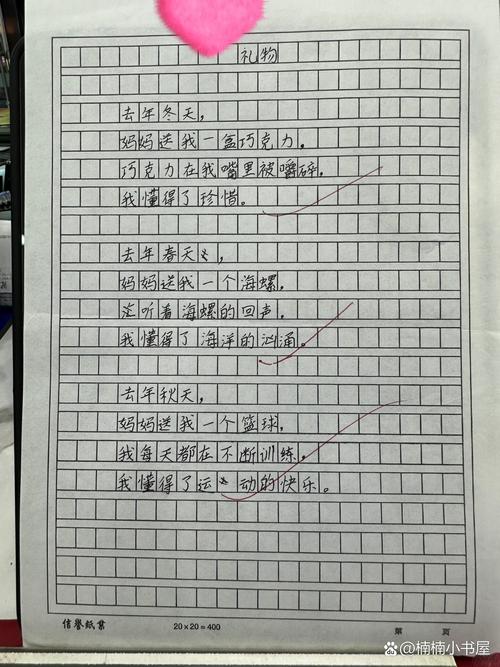 礼物
去年冬天，
妈妈送我一盒巧克力，
巧克力在我嘴里被嚼碎，
我懂得了珍惜。
去年春天，
妈妈送我一个海螺，
聆听着海螺的回声，
我懂得了海洋的汹涌。
去年秋天，
妈妈送我一个篮球，
我每天都在不断训练，
我懂得了运动的快乐。
信誉纸业 20×20=400 第 页
@楠楠小书屋